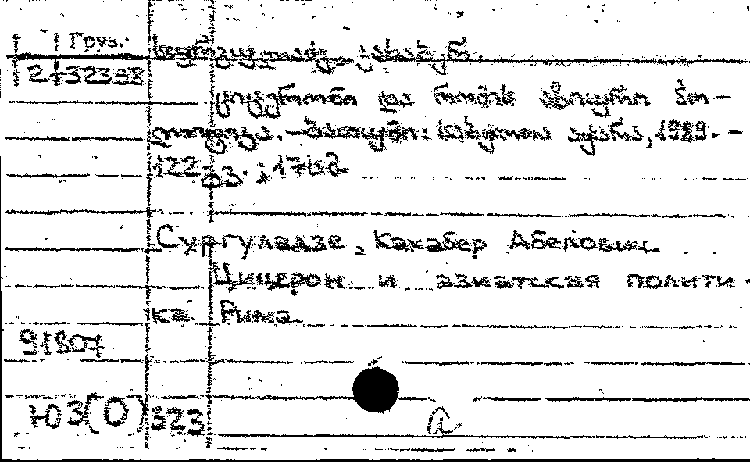 Груз.
2-32398
სურგულაძე, კახაბერ.
ციცერონი და რომის აზიური პო-
ლიტიკა. – ბათუმი: საბჭოთა აჭარა, 1989. –
122გვ.; 17სმ
Сургуладзе, Какабер Абелович
Цицерон и азиатская полити-
ка Рима
91807
ЮЗ(0)323
a